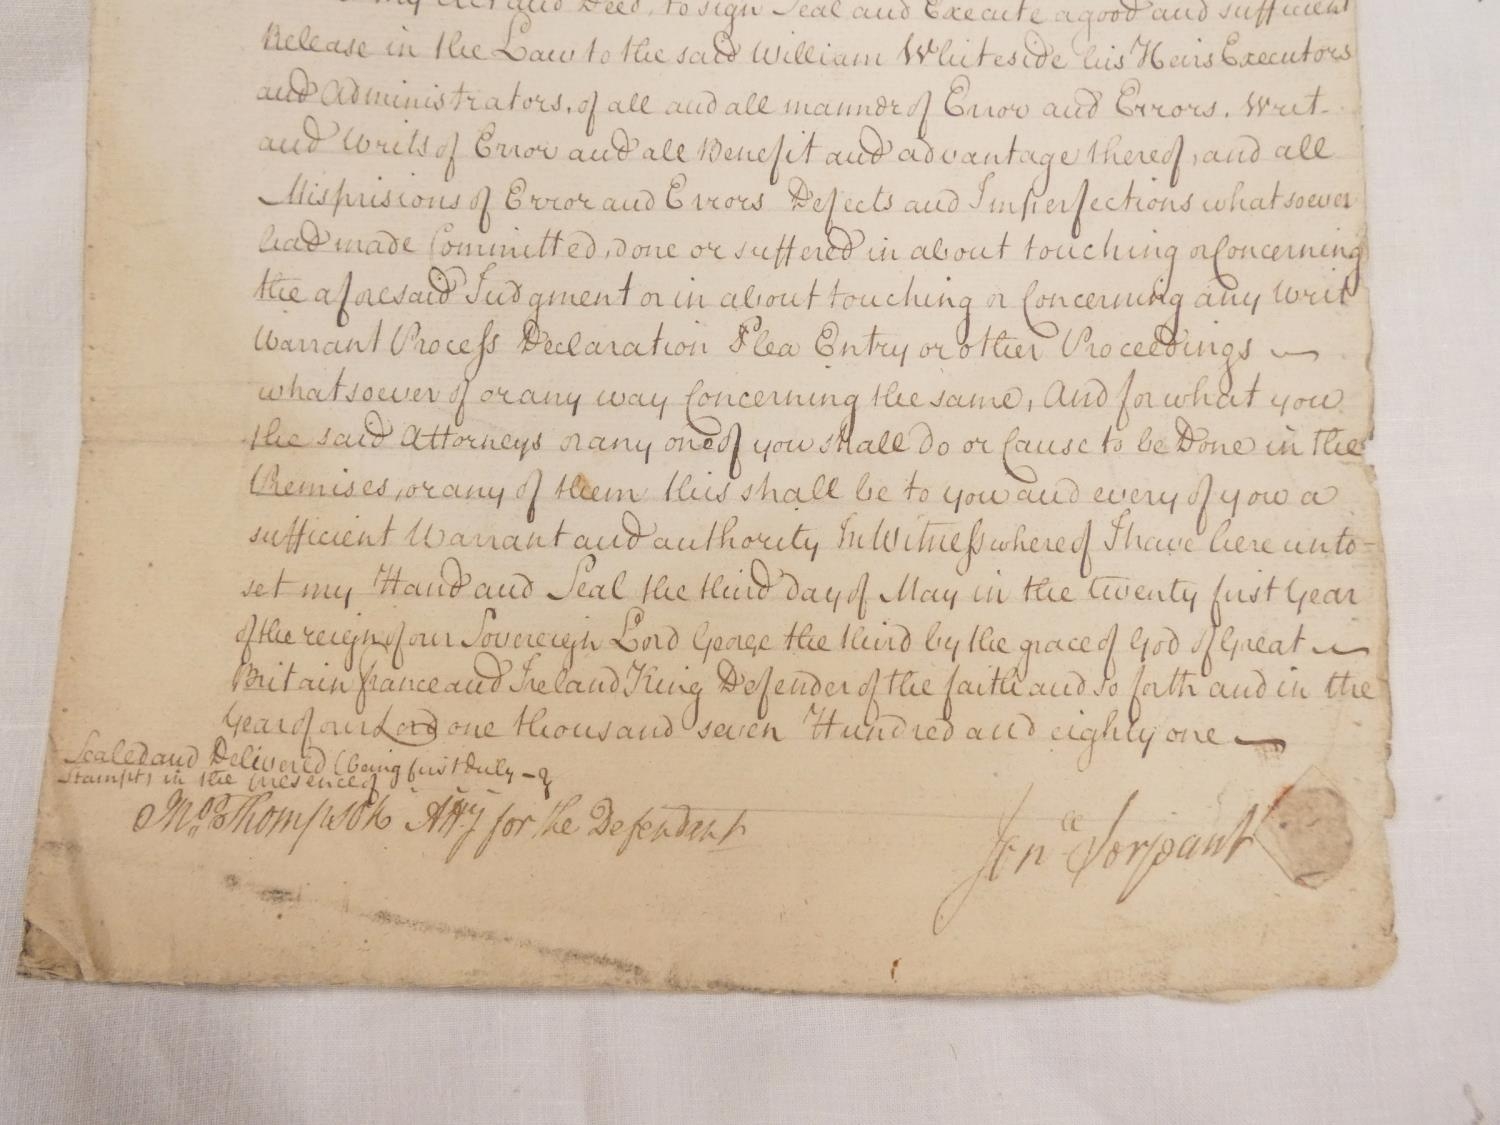 my Act and Deed, to sign Seal and Execute a good and sufficient
Release in the Law to the said William Whiteside his Heirs Executors
and Administrators, of all and all manner of Error and Errors, Writ
and Writs of Error and all Benefit and advantage thereof, and all
Misprisions of Error and Errors Defects and Imperfections whatsoever
had made Committed, done or suffered in about touching or Concerning
the aforesaid Judgment or in about touching or Concerning any Writ
Warrant Process Declaration Plea Entry or other Proceedings
whatsoever of or any way Concerning the same, And for what you
the said Attorneys or any one of you shall do or Cause to be Done in the
Premises, or any of them this shall be to you and every of you a
sufficient Warrant and authority In Witness whereof I have here unto
set my Hand and Seal the third Day of May in the twenty first Year
of the reign of our Sovereign Lord George the third by the grace of God of Great
Britain france and Ireland King Defender of the faith and so forth and in the
Year of our Lord one thousand seven Hundred and eighty one
Sealed and Delivered (being first Duly
Stampt) in the presence of
Thompson Atty for the Defendant
Serjeant